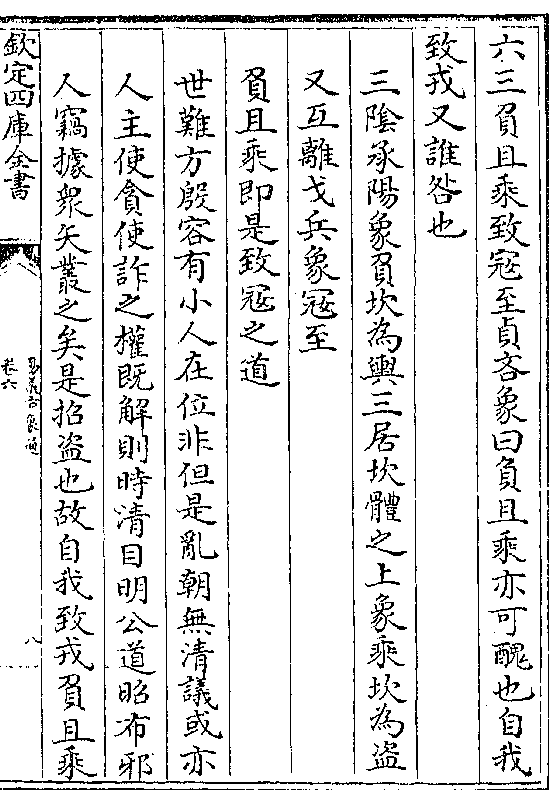 六三負且乘致寇至貞吝象曰負且乘亦可醜也自我
致戎又誰咎也
三陰承陽象負坎為輿三居坎體之上象乘坎為盜
又互離戈兵象寇至
負且乘即是致寇之道
世難方殷容有小人在位非但是亂朝無清議或亦
人主使貪使詐之權既解則時清目明公道昭布邪
人竊據衆矢叢之矣是招盜也故自我致戎負且乘
欽定四庫全書
卷六
八